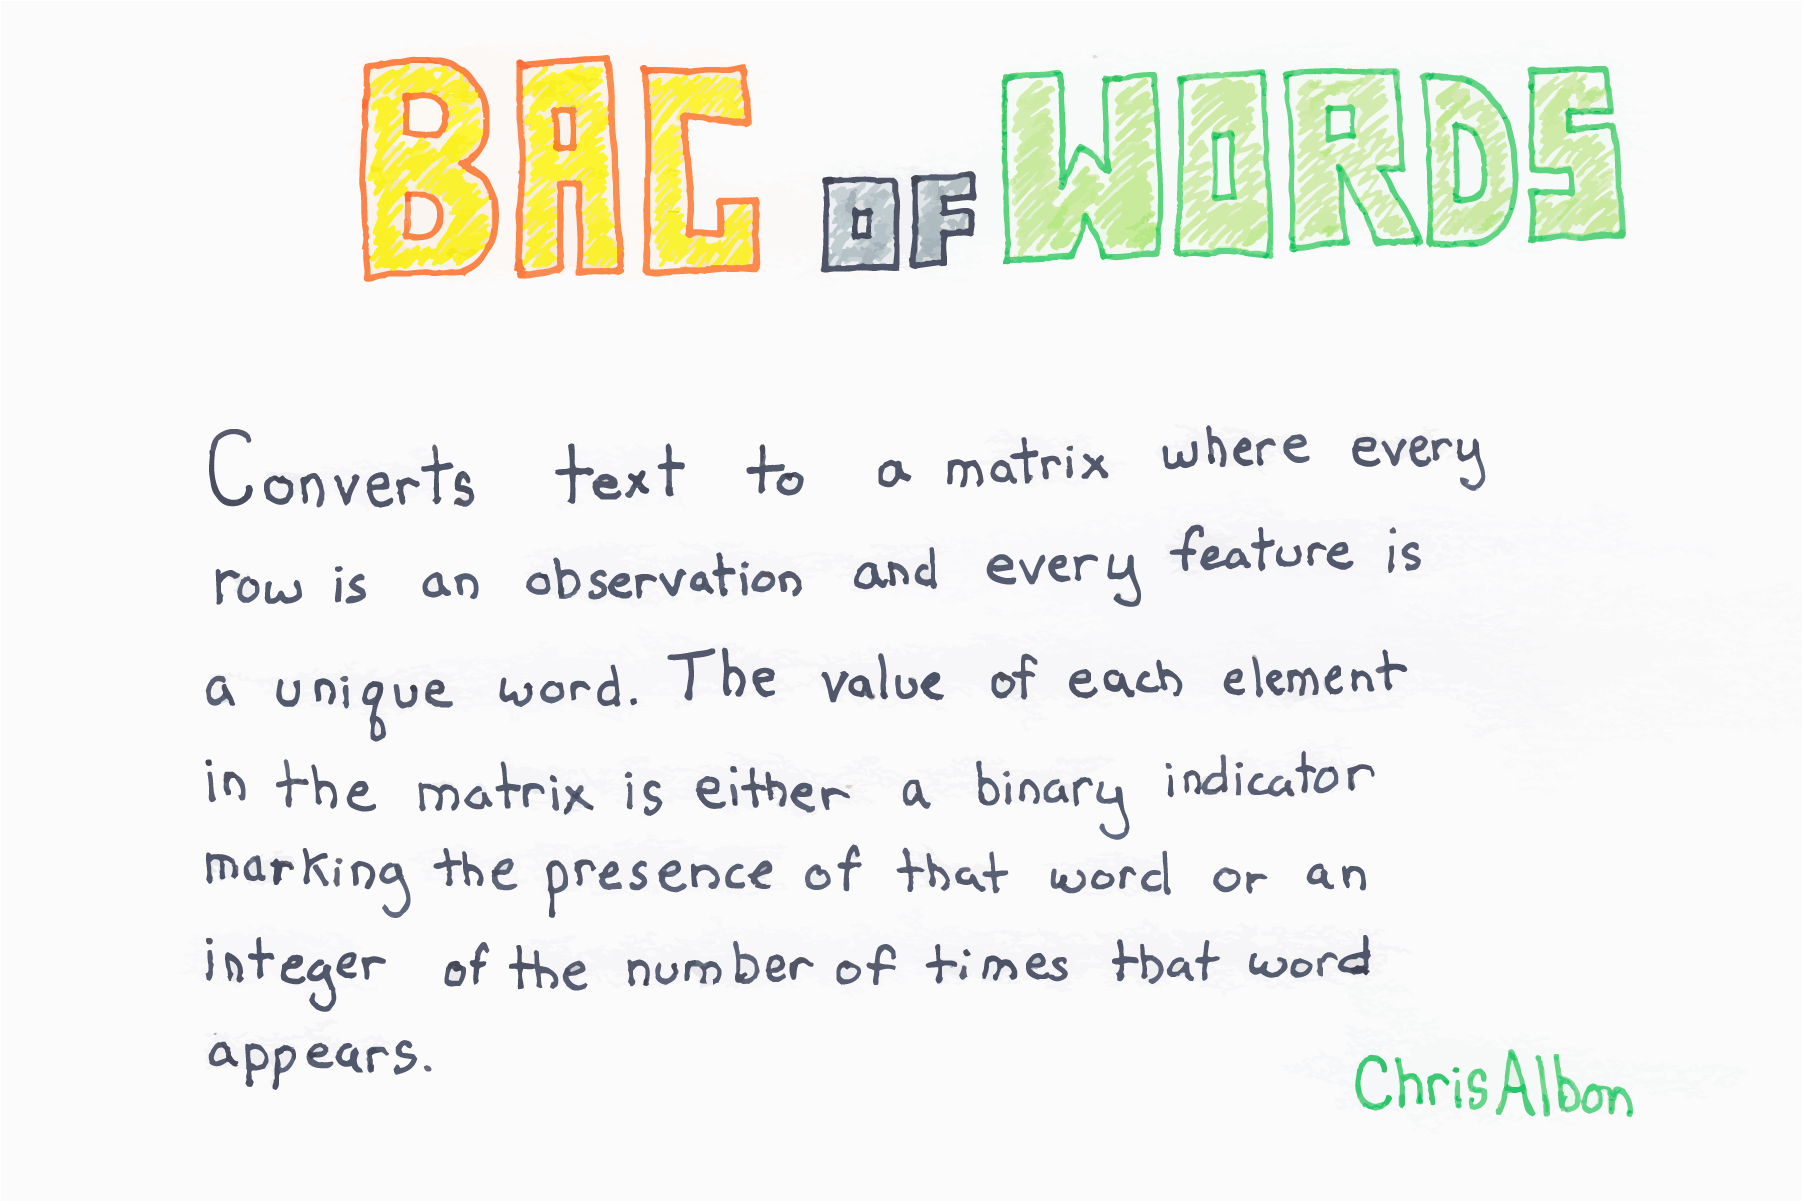 BAG OF WORDS
Converts text to a matrix where every
row is an observation and every feature is
a unique word. The value of each element
in the matrix is either a binary indicator
marking the presence of that word or an
integer of the number of times that word
appears.
ChrisAlbon